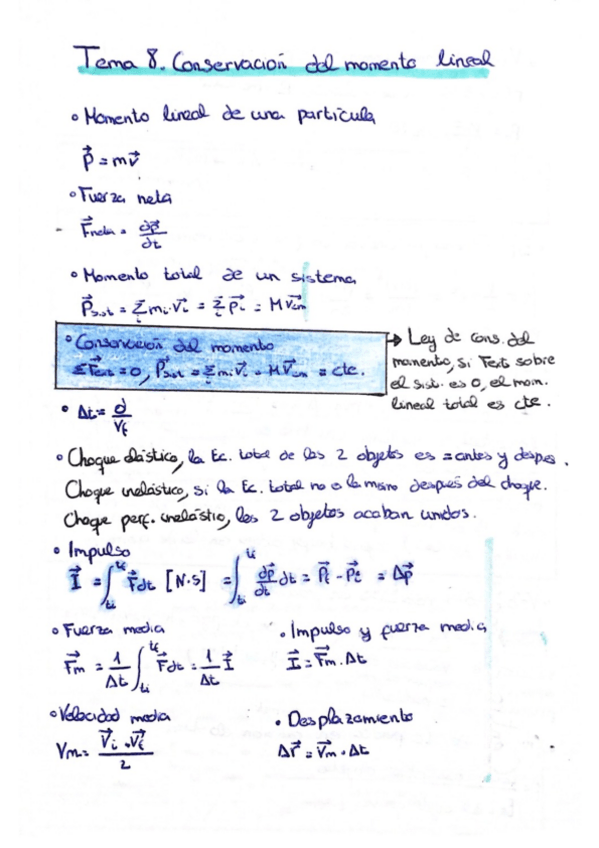 Tema 8. Conservación del momento lineal
• Momento lineal de una partícula
p⃗ = mv⃗
• Fuerza neta
F⃗neta = dp⃗/dt
• Momento total de un sistema
P⃗sist = Σᵢ mᵢ·v⃗ᵢ = Σᵢ p⃗ᵢ = M v⃗cm
• Conservación del momento
ΣF⃗ext = 0, P⃗sist = Σᵢ mᵢv⃗ᵢ = M v⃗cm = cte.
→ Ley de cons. del
momento, si Fext sobre
el sist. es 0, el mom.
lineal total es cte.
• Δt = d/vf
• Choque elástico, la Ec. total de los 2 objetos es = antes y despes.
Choque inelástico, si la Ec. total no es la misma después del choque.
Choque perf. inelástio, los 2 objetos acaban unidos.
• Impulso
I⃗ = ∫ti^tf F⃗dt [N·s] = ∫ti^tf dp⃗/dt dt = P⃗f - P⃗i = Δp⃗
• Fuerza media
F⃗m = 1/Δt ∫ti^tf F⃗dt = 1/Δt I⃗
• Impulso y fuerza media
I⃗ = F⃗m · Δt
• Velocidad media
Vm = V⃗i + V⃗f / 2
• Desplazamiento
Δr⃗ = V⃗m · Δt